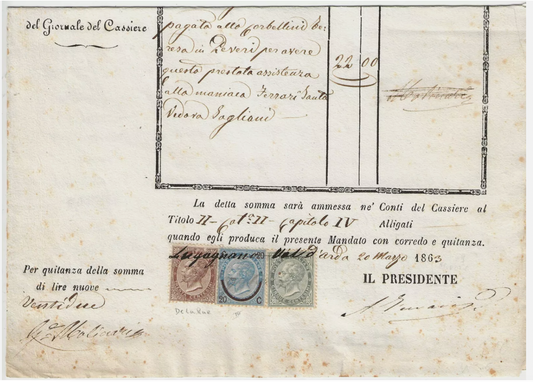 del Giornale del Cassiere
pagata alla Corbellini Te-
resa in Peveri per avere
questa prestata assistenza
alla maniaca Ferrari Santa
Vedova Pagliani
22 00
La detta somma sarà ammessa ne' Conti del Cassiere al
Titolo II - Cat. II - Capitolo IV Alligati
quando egli produca il presente Mandato con corredo e quitanza.
Lugagnano Val d'Arda 20 Marzo 1863
Per quitanza della somma
di lire nuove
Ventidue
IL PRESIDENTE
20 C
De La Rue